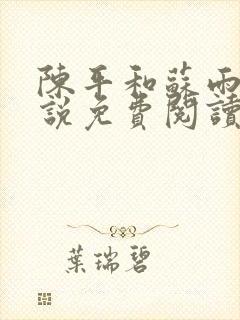 陳平和蘇雨
說免費閱讀
葉瑞碧